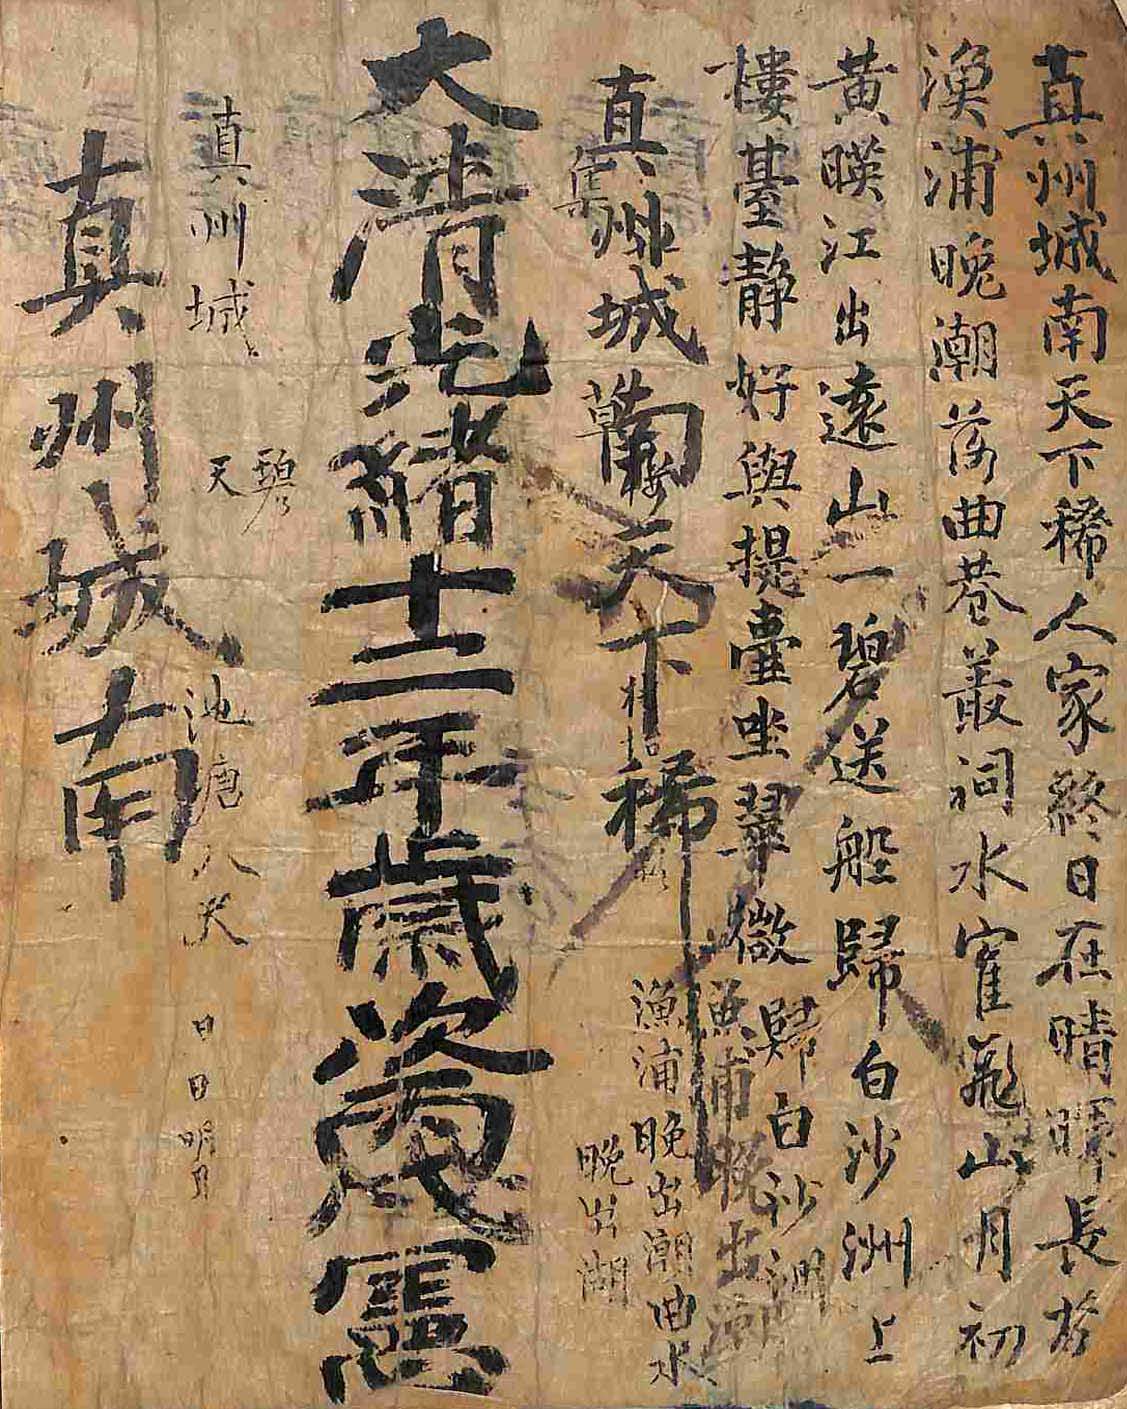 真州城南天下稀人家終日在晴暉長於
漁浦晚潮落曲巷叢祠水寉飛山月初
黃暎江出遠山一碧送船歸白沙洲上
樓臺靜好與提臺坐翠微
歸白沙洲
漁浦晚出潮
真州城南天下稀
漁浦晚出潮曲水
集
草
晚出湖
大清光緒十二年歲次丙戌憲
碧
天
真州城
池唐八大
日日明月
真州城南